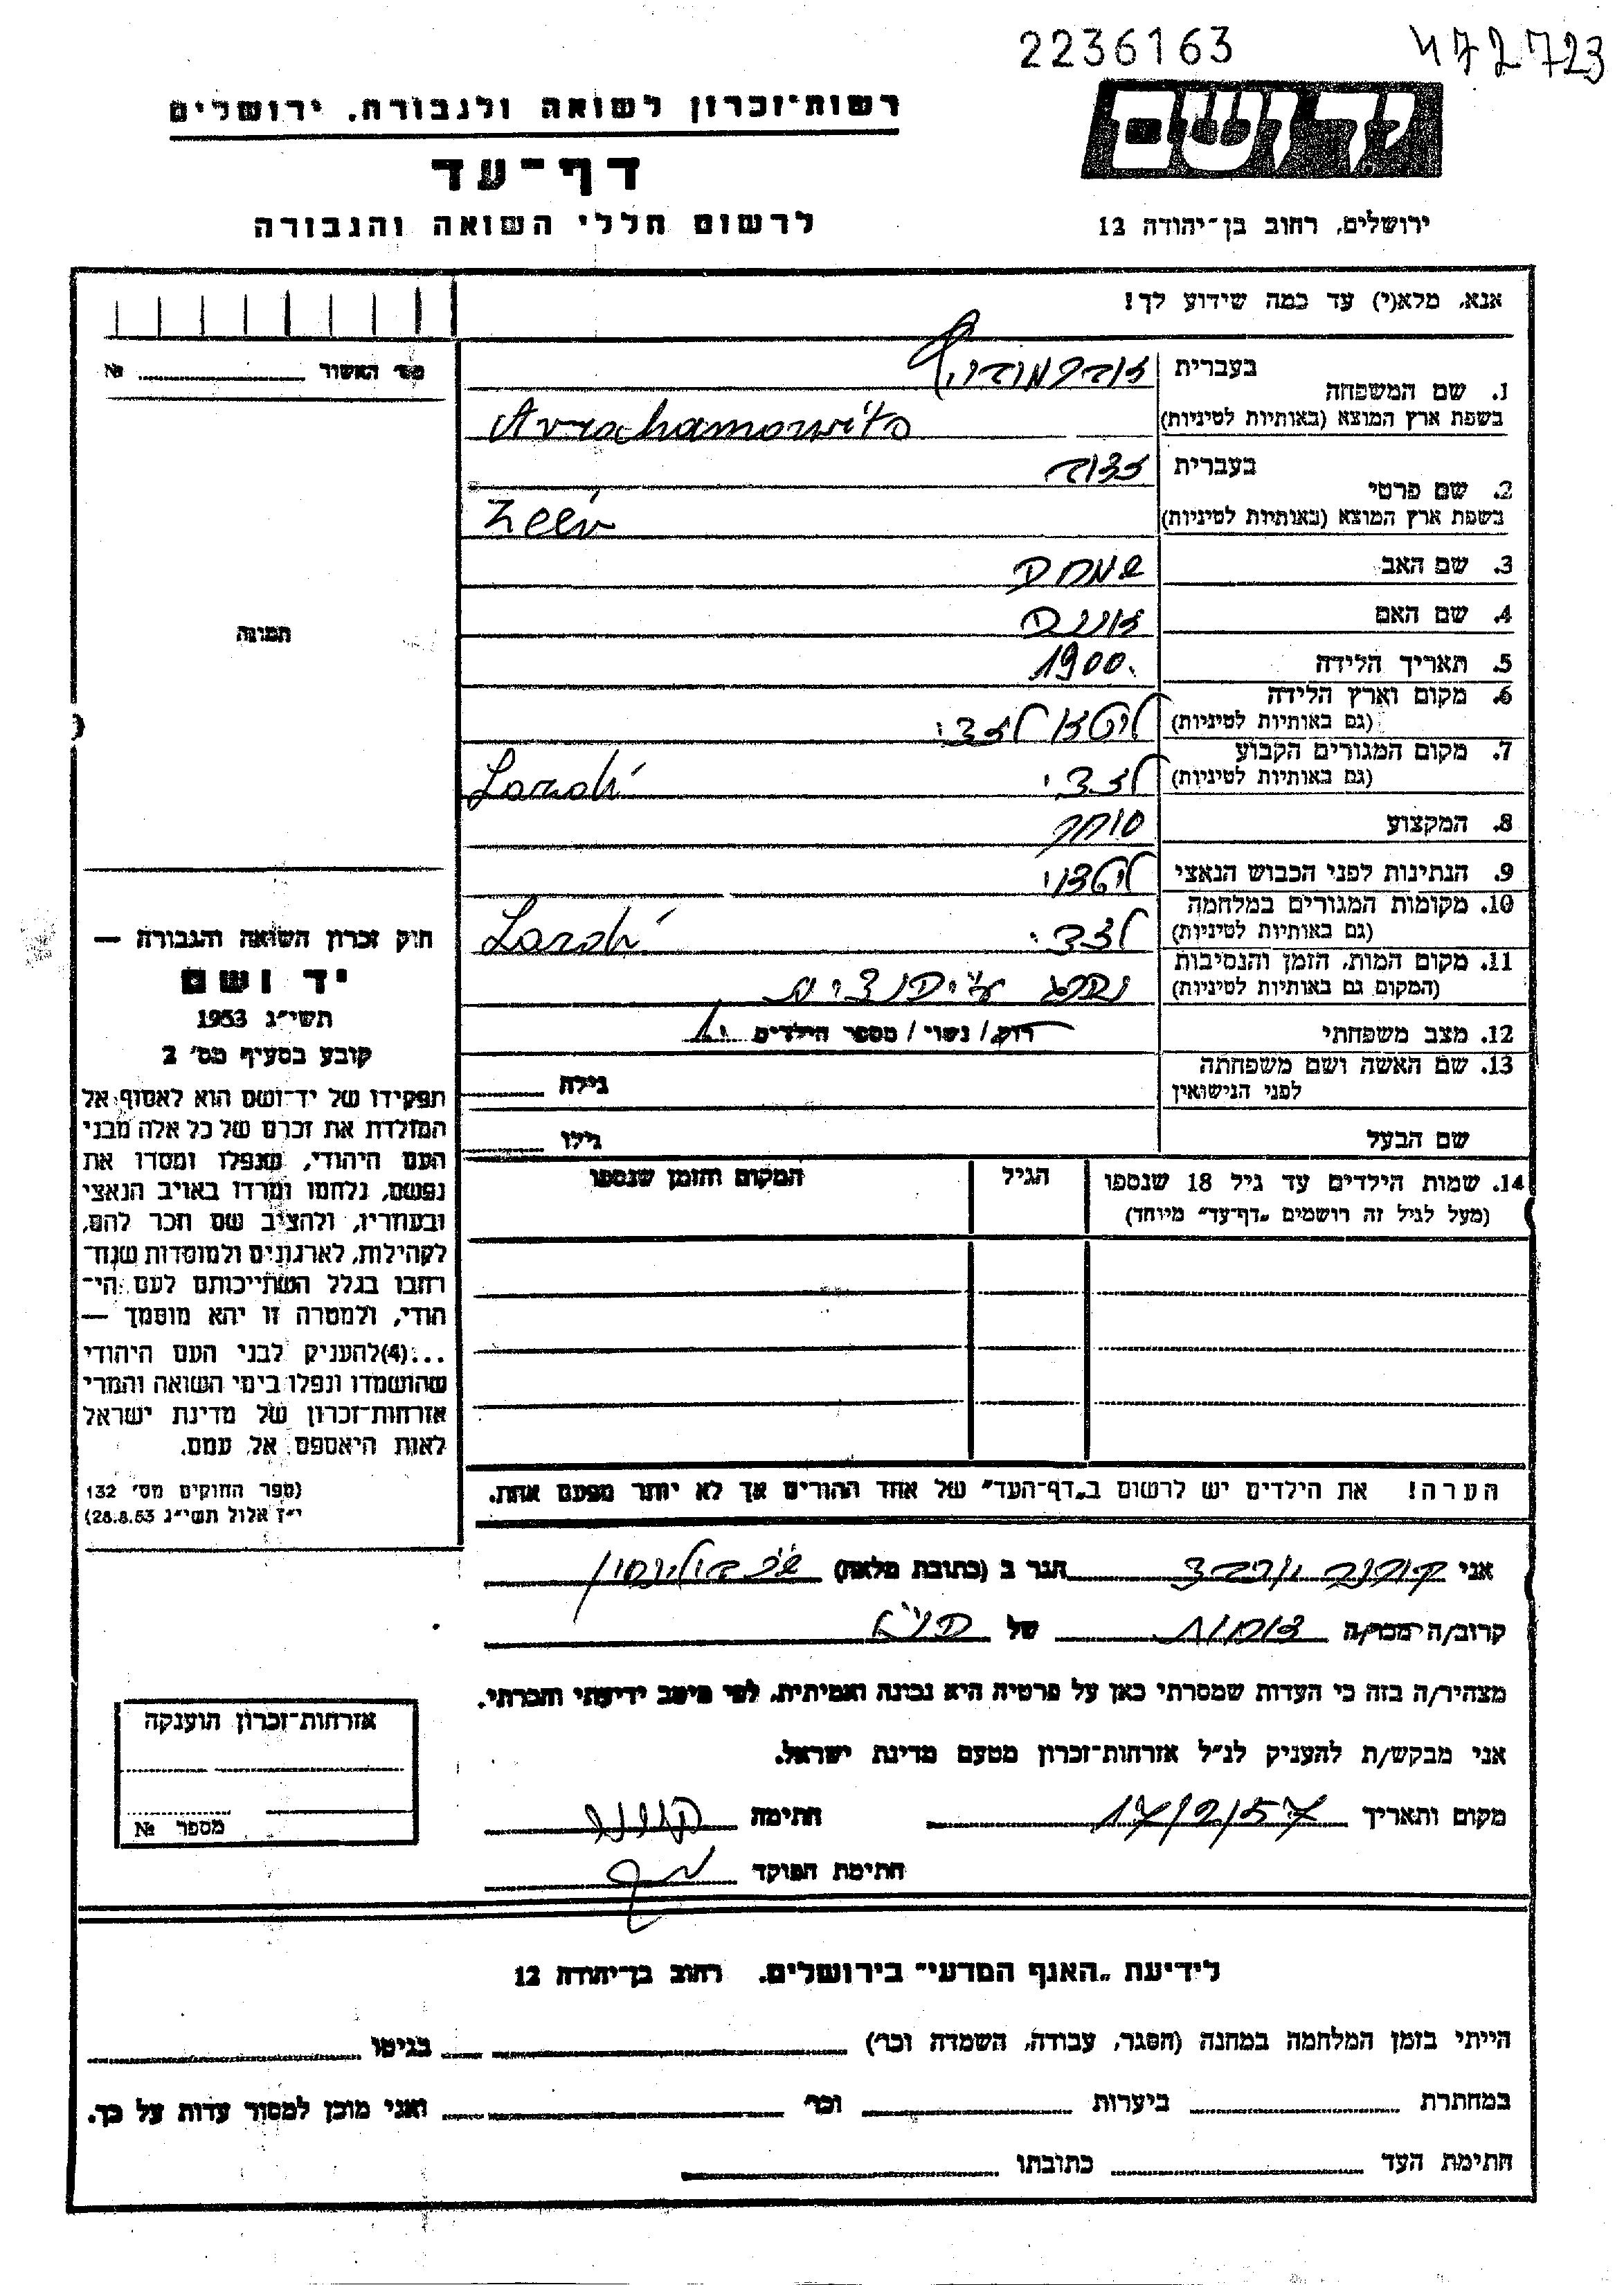 2236163
472723
רשות־זכרון לשואה ולגבורה. ירושלים
יד ושם
דף־עד
לרשום חללי השואה והגבורה
ירושלים, רחוב בן־יהודה 12
אנא, מלא(י) עד כמה שידוע לך!
מס' האשור № 
1. שם המשפחה
בעברית
בשפת ארץ המוצא (באותיות לטיניות) Avrahamowits
2. שם פרטי
בעברית זאב
בשפת ארץ המוצא (באותיות לטיניות) Zeev
3. שם האב שמחה
4. שם האם
5. תאריך הלידה 1900.
6. מקום וארץ הלידה
(גם באותיות לטיניות) ליטא לזדי
7. מקום המגורים הקבוע
(גם באותיות לטיניות) לזדי Lazdi
8. המקצוע סוחר
9. הנתינות לפני הכבוש הנאצי ליטאי
10. מקומות המגורים במלחמה
(גם באותיות לטיניות) לזדי Lazdi
11. מקום המות, הזמן והנסיבות
(המקום גם באותיות לטיניות) נהרג ע"י הנאצים
12. מצב משפחתי רווק / נשוי / מספר הילדים
13. שם האשה ושם משפחתה
לפני הנישואין גילה
שם הבעל גילו
14. שמות הילדים עד גיל 18 שנספו
(מעל לגיל זה רושמים „דף־עד" מיוחד)
הגיל
המקום והזמן שנספו
הערה! את הילדים יש לרשום ב„דף־העד" של אחד ההורים אך לא יותר מפעם אחת.
תמונה
חוק זכרון השואה והגבורה —
יד ושם
תשי"ג 1953
קובע בסעיף מס' 2
תפקידו של יד־ושם הוא לאסוף אל
המולדת את זכרם של כל אלה מבני
העם היהודי, שנפלו ומסרו את
נפשם, נלחמו ומרדו באויב הנאצי
ובעוזריו, ולהציב שם וזכר להם,
לקהילות, לארגונים ולמוסדות שנח־
רבו בגלל השתייכותם לעם הי־
הודי, ולמטרה זו יהא מוסמך —
...(4) להעניק לבני העם היהודי
שהושמדו ונפלו בימי השואה והמרי
אזרחות־זכרון של מדינת ישראל
לאות היאספם אל עמם.
(ספר החוקים מס' 132
י"ז אלול תשי"ג 28.8.53)
אני הגר ב (כתובת מלאה)
קרוב/ה מכר/ה של
מצהיר/ה בזה כי העדות שמסרתי כאן על פרטיה היא נכונה ואמיתית, לפי מיטב ידיעתי והכרתי.
אני מבקש/ת להעניק לנ"ל אזרחות־זכרון מטעם מדינת ישראל.
מקום ותאריך 17/2/57 חתימה
חתימת הפוקד
אזרחות־זכרון הוענקה
מספר №
לידיעת „האגף המדעי" בירושלים. רחוב בן־יהודה 12
הייתי בזמן המלחמה במחנה (הסגר, עבודה, השמדה וכו') בגיטו
במחתרת ביערות וכו' ואני מוכן למסור עדות על כך.
חתימת העד כתובתו